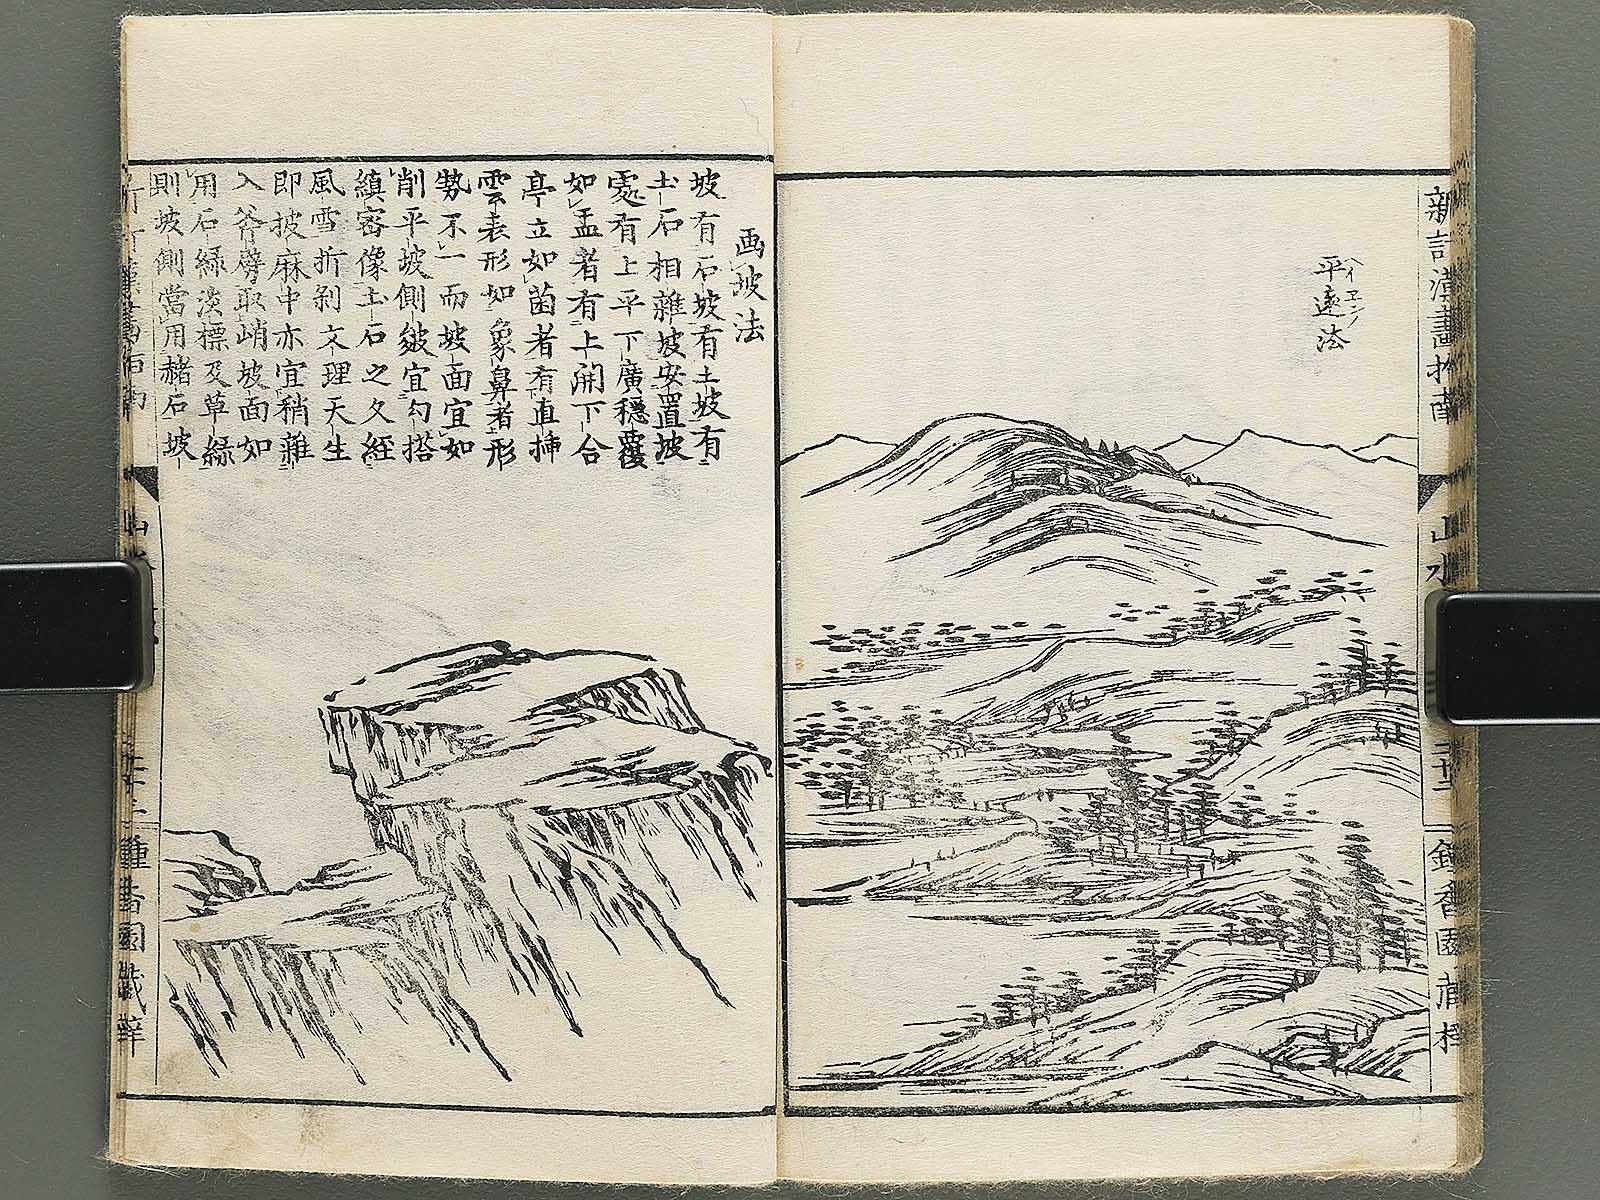 新訂漢畫指南
山水
鐘香園藏梓
平遠法
ヘイエン
画坡法
坡有石坡有土坡有
土石相雜坡安置坡
處有上平下廣穩覆
如盂者有上開下合
亭立如菌者有直挿
雲表形如象鼻者形
勢不一而坡面宜如
削平坡側皴宜勾搭
縝密像土石之久經
風雪折剝文理天生
即披麻中亦宜稍雜
入斧劈取峭坡面如
用石綠淡標及草綠
則坡側當用赭石坡